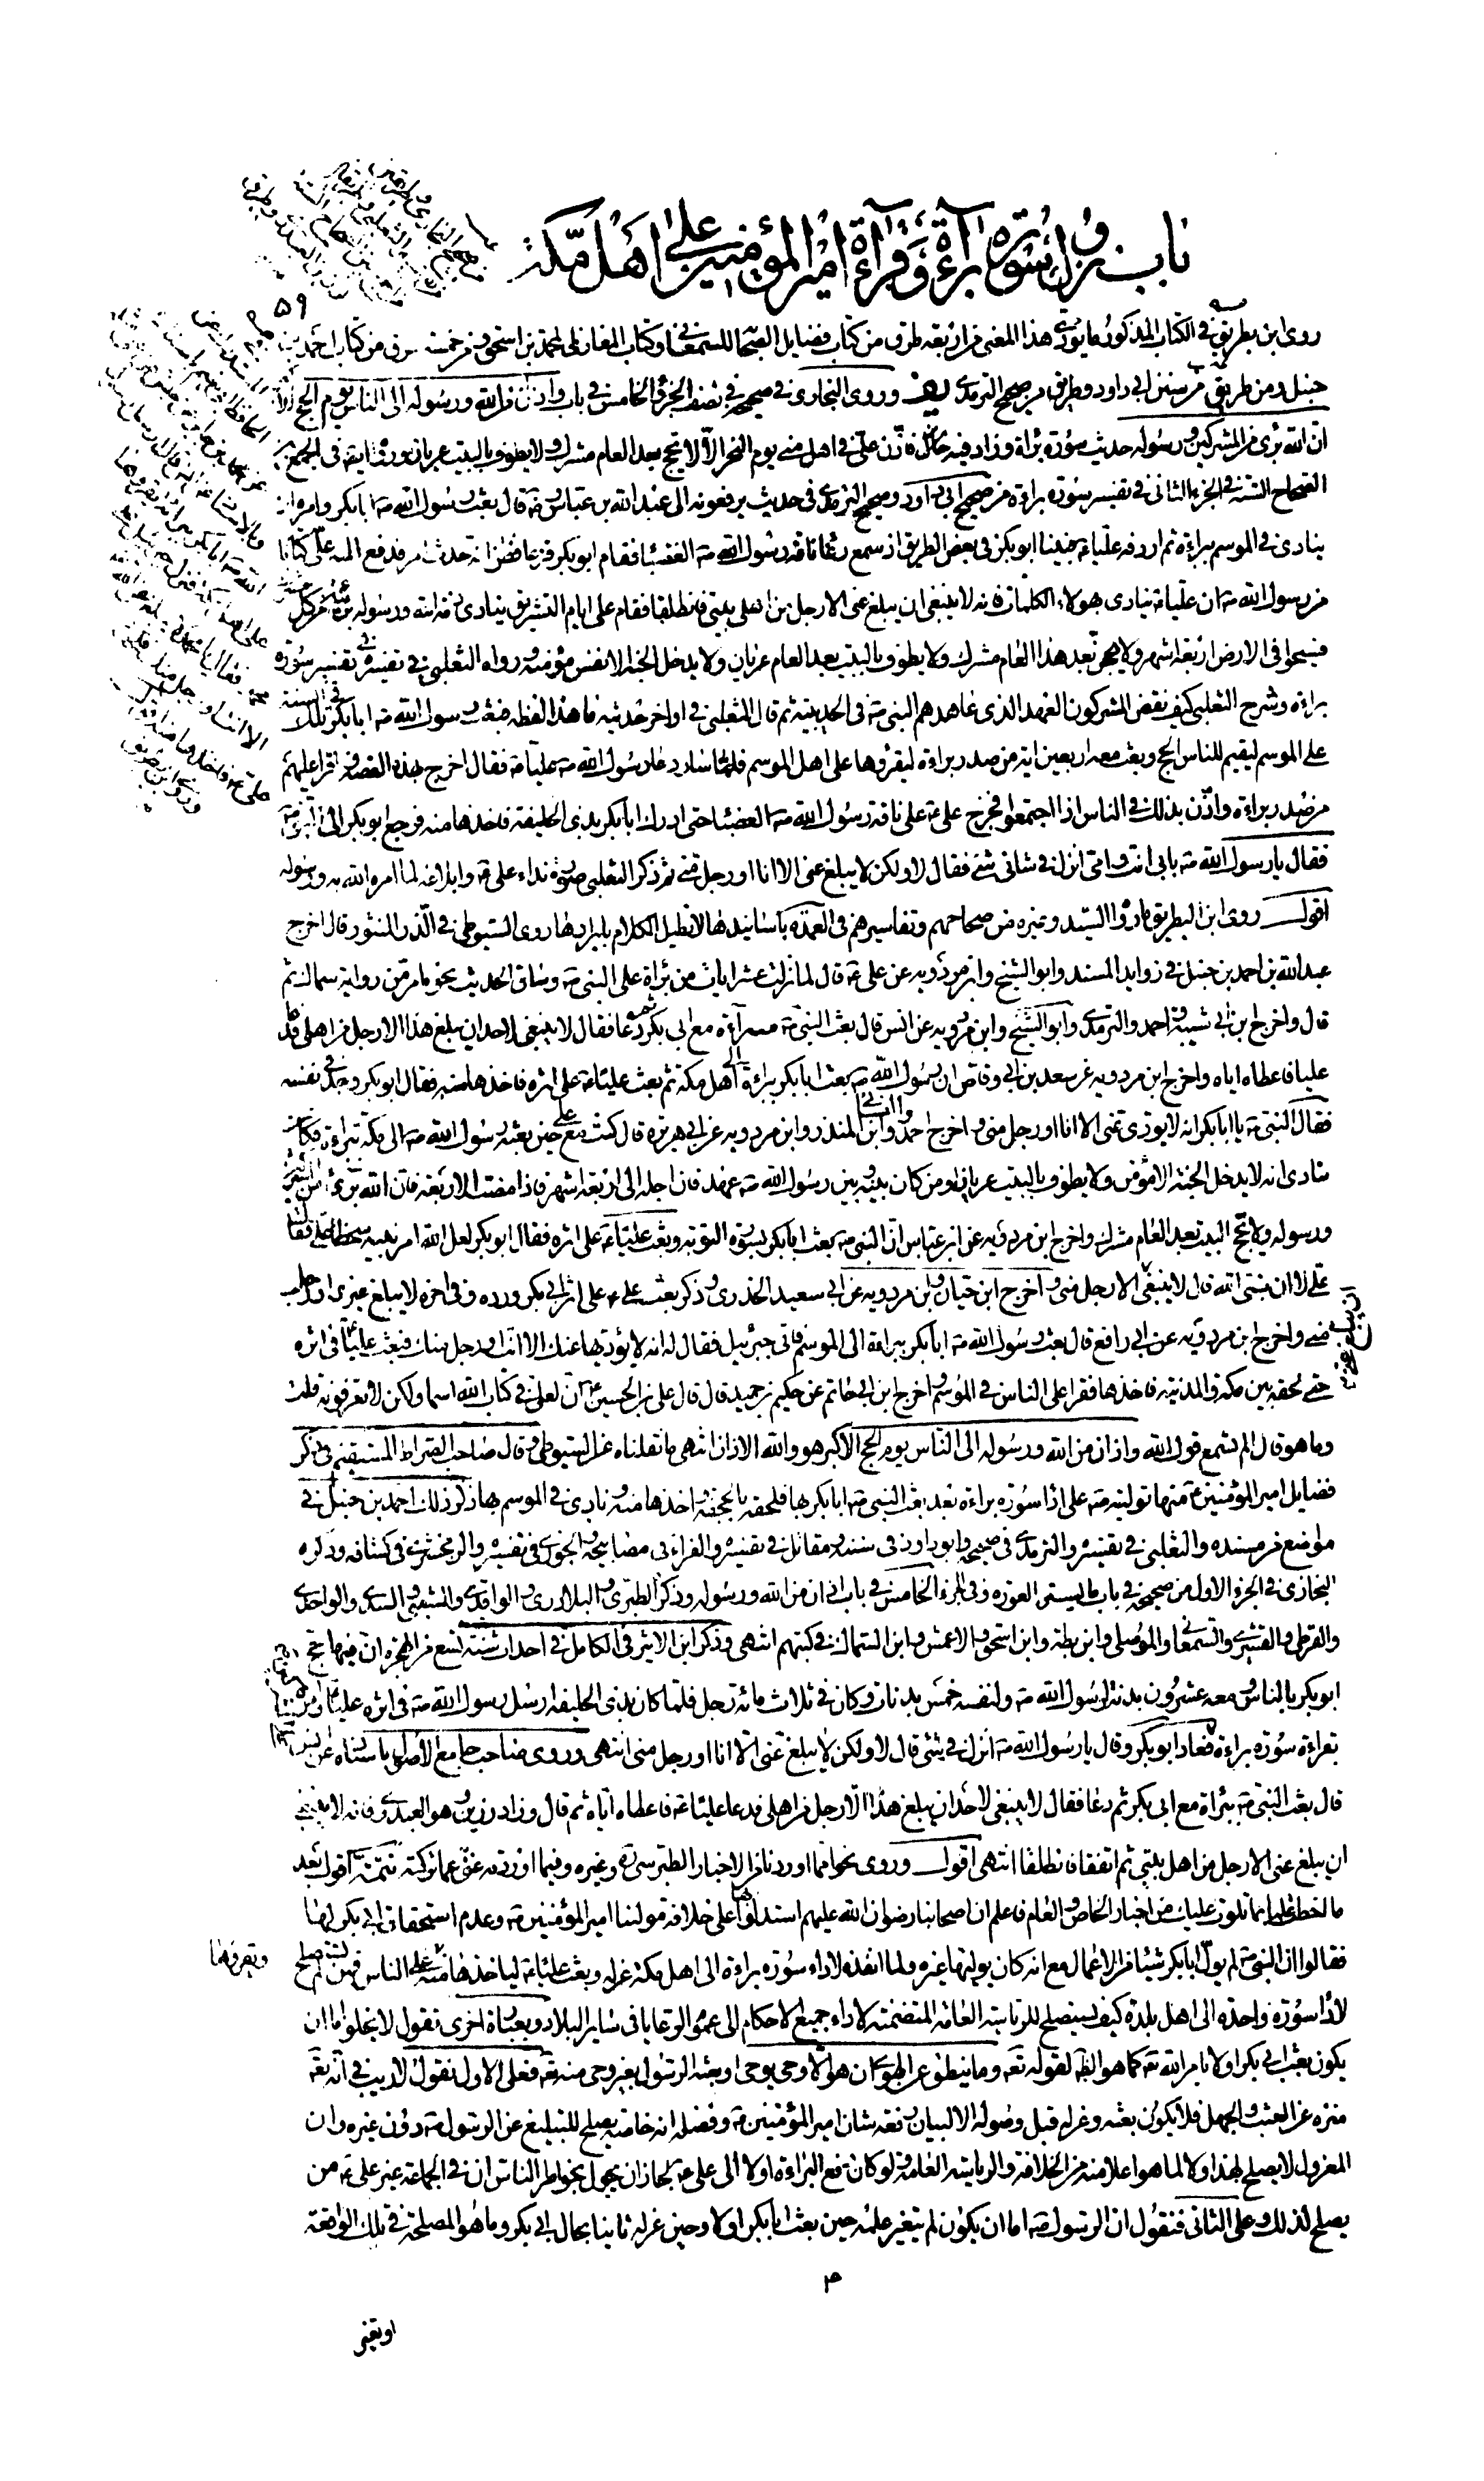 باب نزول سورة براءة وقراءة امير المؤمنين على اهل مكة
روى ابن بطريق في الكتاب المذكور ما يؤدي هذا المعنى من اربعة طرق من كتاب فضايل الصحابة للسمعاني وكتاب المغازي لمحمد بن اسحق ومن خمسة طرق من كتاب احمد بن
حنبل ومن طريق من سنن ابي داود وطريق من صحيح الترمدي وروى البخارى في صحيحه في نصف الجزء الخامس في باب واذان من الله ورسوله الى الناس يوم الحج الاكبر
ان الله برئ من المشركين ورسوله حديث سورة براءة وزاد فيه فاذن علي في اهل منى يوم النحر الا لا يحج بعد العام مشرك ولا يطوف بالبيت عريان ورواية في الجمع بين
الصحاح الستة في الجزء الثانى في تفسير سورة براءة من صحيح ابي داود وصحيح الترمدى في حديث يرفعونه الى عبد الله بن عباس قال بعث رسول الله ص ابا بكر وامره ان
ينادى في الموسم ببراءة ثم اردفه عليا ع فبينا ابو بكر في بعض الطريق اذ سمع رغاء ناقة رسول الله ص العضبا فقام ابو بكر فزعا فظن انه حدث امر فدفع اليه علي كتابا
من رسول الله ص ان عليا ع ينادى بهولاء الكلمات فانه لا ينبغى ان يبلغ عنى الا رجل من اهل بيتي فانطلقا فقام على ايام التشريق ينادى ذمة الله ورسوله بريئة من كل مشرك
فسيحوا في الارض اربعة اشهر ولا يحجن بعد هذا العام مشرك ولا يطوف بالبيت بعد العام عريان ولا يدخل الجنة الا نفس مؤمنة ورواه الثعلبي في تفسيره في تفسير سورة
براءة وشرح الثعلبي كيف نقض المشركون العهد الذى عاهدهم النبى ص في الحديبية ثم قال الثعلبي في اواخر حديثه ما هذا لفظه فبعث رسول الله ص ابا بكر تلك السنة
على الموسم ليقيم للناس الحج وبعث معه اربعين اية من صدر براءة ليقرؤها على اهل الموسم فلما سار دعا رسول الله ص عليا ع فقال اخرج بهذه القصة واقرا عليهم
من صدر براءة واذن بذلك في الناس اذا اجتمعوا فخرج علي ع على ناقة رسول الله ص العضبا حتى ادرك ابا بكر بذى الحليفة فاخذها منه فرجع ابو بكر الى النبي ص
فقال يا رسول الله ص بابي انت وامي انزل في شانى شئ فقال لا ولكن لا يبلغ عنى الا انا او رجل مني ثم ذكر الثعلبي صورة نداء علي ع وابلاغه لما امره الله به ورسوله
اقول روى ابن البطريق ما رواه السيد وغيره من صحاحهم وتفاسيرهم في العمدة باسانيدها لا نطيل الكلام بايرادها روى السيوطي في الدر المنثور قال اخرج
عبد الله بن احمد بن حنبل في زوايد المسند وابو الشيخ وابن مردويه عن علي ع قال لما نزلت عشر ايات من براءة على النبي ص وساق الحديث نحو ما مر من رواية سماك ثم
قال واخرج ابن ابي شيبة واحمد والترمدي وابو الشيخ وابن مردويه عن انس قال بعث النبي ص ببراءة مع ابي بكر ثم دعا فقال لا ينبغى لاحد ان يبلغ هذا الا رجل من اهلى فدعا
عليا فاعطاه اياه واخرج ابن مردويه عن سعد بن ابي وقاص ان رسول الله ص بعث ابا بكر ببراءة الى اهل مكة ثم بعث عليا ع على اثره فاخذها منه فقال ابو بكر وجد في نفسه
فقال النبي ص يا ابا بكر انه لا يؤدى عنى الا انا او رجل منى واخرج احمد والنسائي وابن المنذر وابن مردويه عن ابي هريرة قال كنت مع علي حين بعثه رسول الله ص الى مكة ببراءة فكنا
ننادى انه لا يدخل الجنة الا مؤمن ولا يطوف بالبيت عريان ومن كان بينه وبين رسول الله ص عهد فان اجله الى اربعة اشهر فاذا مضت الاربعة فان الله برئ من المشركين
ورسوله ولا يحج البيت بعد العام مشرك واخرج ابن مردويه عن ابن عباس ان النبى ص بعث ابا بكر بسورة التوبة وبعث عليا ع على اثره فقال ابو بكر لعل الله امر نبيه سخطا علي فقال
علي لا ان نبي الله قال لا ينبغى ان يبلغ عني الا رجل منى واخرج ابن حبان وابن مردويه عن ابي سعيد الخدرى وذكر بعث علي ع على اثر ابي بكر ورده وفى اخره لا يبلغ غيرى او رجل
منى واخرج ابن مردويه عن ابي رافع قال بعث رسول الله ص ابا بكر ببراءة الى الموسم فاتى جبرئيل فقال له انه لا يؤديها عنك الا انت او رجل منك فبعث عليا في اثره
حتى لحقه بين مكة والمدينة فاخذها فقرا على الناس في الموسم واخرج ابن ابي حاتم عن حكيم بن حميد قال قال علي بن الحسين ع ان لعلي في كتاب الله اسما ولكن لا تعرفونه قلت
وما هو قال الم تسمع قول الله واذان من الله ورسوله الى الناس يوم الحج الاكبر هو والله الاذان انتهى ما نقلناه عن السيوطي وقال صاحب الصراط المستقيم في ذكر
فضايل امير المؤمنين ع منها توليته على اداء سورة براءة بعد بعث النبي ص ابا بكر بها فلحقه بالجحفة واخذها منه ونادى في الموسم بها ذكر ذلك احمد بن حنبل في
مواضع من مسنده والثعلبي في تفسيره والترمدي في صحيحه وابو داود فى سننه ومقاتل في تفسيره والفراء فى مصابيحه والجوزي في تفسيره والزمخشري في كشافه وذكره
البخارى في الجزء الاول من صحيحه في باب ما يستر العورة وفى الجزء الخامس في باب اذان من الله ورسوله وذكر الطبرى والبلاذرى والواقدي والشعبي والسدي والواحدي
والقرطي والقشيري والسمعاني والموصلي وابن بطة وابن اسحق والاعمش وابن السماك في كتبهم انتهى وذكر ابن الاثير في الكامل في احداث سنة تسع من الهجرة ان فيها حج
ابو بكر بالناس ومعه عشرون بدنة لرسول الله ص ولنفسه خمس بدنات وكان في ثلاث مائة رجل فلما كان بذى الحليفة ارسل رسول الله ص في اثره عليا وامره
بقراءة سورة براءة فعاد ابو بكر وقال يا رسول الله ص انزل في شئ قال لا ولكن لا يبلغ عنى الا انا او رجل منى انتهى وروى صاحب جامع الاصول باسناده عن انس
قال بعث النبي ص ببراءة مع ابى بكر ثم دعا فقال لا ينبغى لاحد ان يبلغ هذا الا رجل من اهلى فدعا عليا ع فاعطاه اياه ثم قال وزاد رزين وهو العبدري فانه لا ينبغى
ان يبلغ عنى الا رجل من اهل بيتى ثم اتفقا فانطلقا انتهى اقول وروى نحوا مما اوردنا من الاخبار الطبرسى ره وغيره وفيما اوردته غنى عما تركته تتميم اقول بعد
ما احطت علما بما تلوت عليك من اخبار الخاص والعام فاعلم ان اصحابنا رضوان الله عليهم استدلوا بها على خلافة مولنا امير المؤمنين ع وعدم استحقاق ابي بكر لها
فقالوا ان النبي ص لم يول ابا بكر شيئا من الاعمال مع انه كان يوليها غيره ولما انفذه لاداء سورة براءة الى اهل مكة عزله وبعث عليا ع لياخذها منه ويقرؤها على الناس فمن لم يصلح
لاداء سورة واحدة الى اهل بلدة كيف يستصلح للرياسة العامة المتضمنة لاداء جميع الاحكام الى عموم الرعايا فى ساير البلاد وبعبارة اخرى نقول لا يخلو اما ان
يكون بعث ابي بكر اولا بامر الله تعه كما هو الظ لقوله تعه وما ينطق عن الهوى ان هو الا وحى يوحى او بعثه الرسول بغير وحى منه تعه فعلى الاول نقول لا ريب في انه تعه
منزه عن العبث والجهل فلا يكون بعثه وعزله قبل وصوله الا لبيان رفعة شان امير المؤمنين ع وفضله انه خاصة يصلح للتبليغ عن الرسول ص دون غيره وان
المعزول لا يصلح لهذا ولا لما هو اعلا منه من الخلافة والرياسة العامة ولو كان دفع البراءة اولا الى علي ع لجاز ان يجول بخواطر الناس ان في الجماعة غير علي ع من
يصلح لذلك وعلى الثانى فنقول ان الرسول ص اما ان يكون لم يتغير علمه حين بعث ابا بكر اولا وحين عزله ثانيا بحال ابي بكر وما هو المصلحة في تلك الواقعة
او تغير